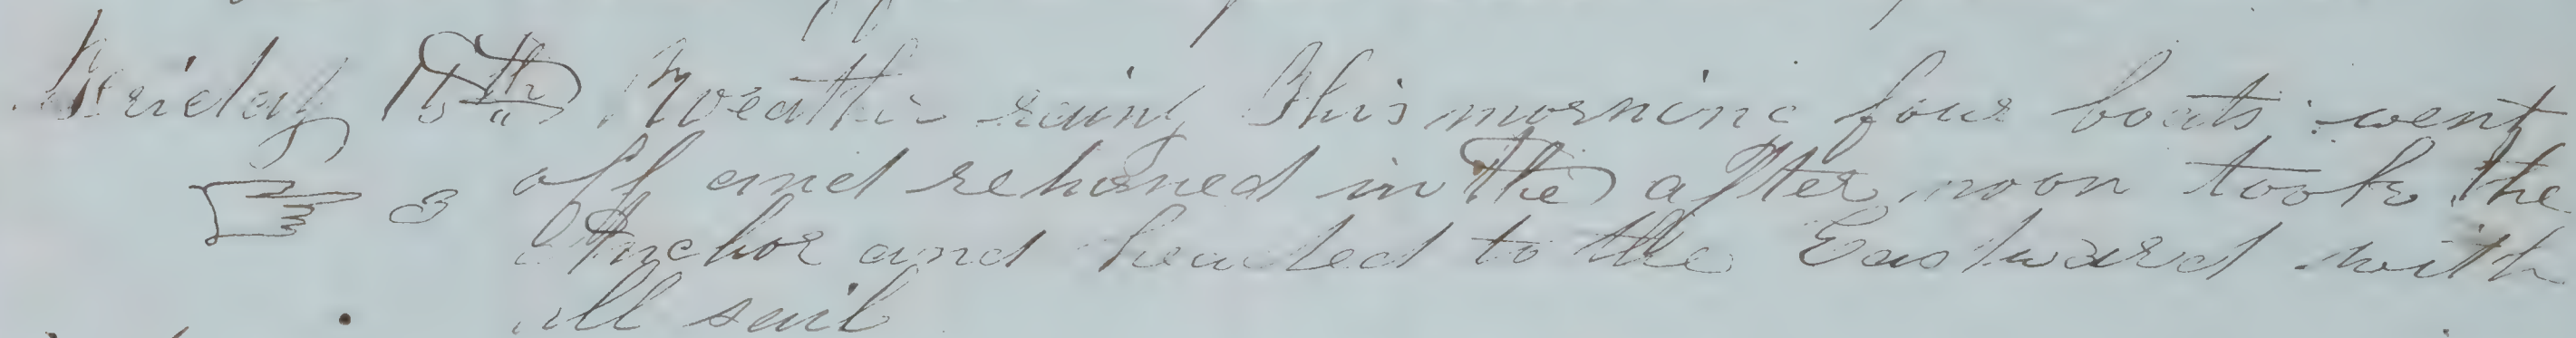 Friday 15th Weather rainy This morning four boats went
off and returned in the after noon took the
Anchor and headed to the Eastward with
all sail